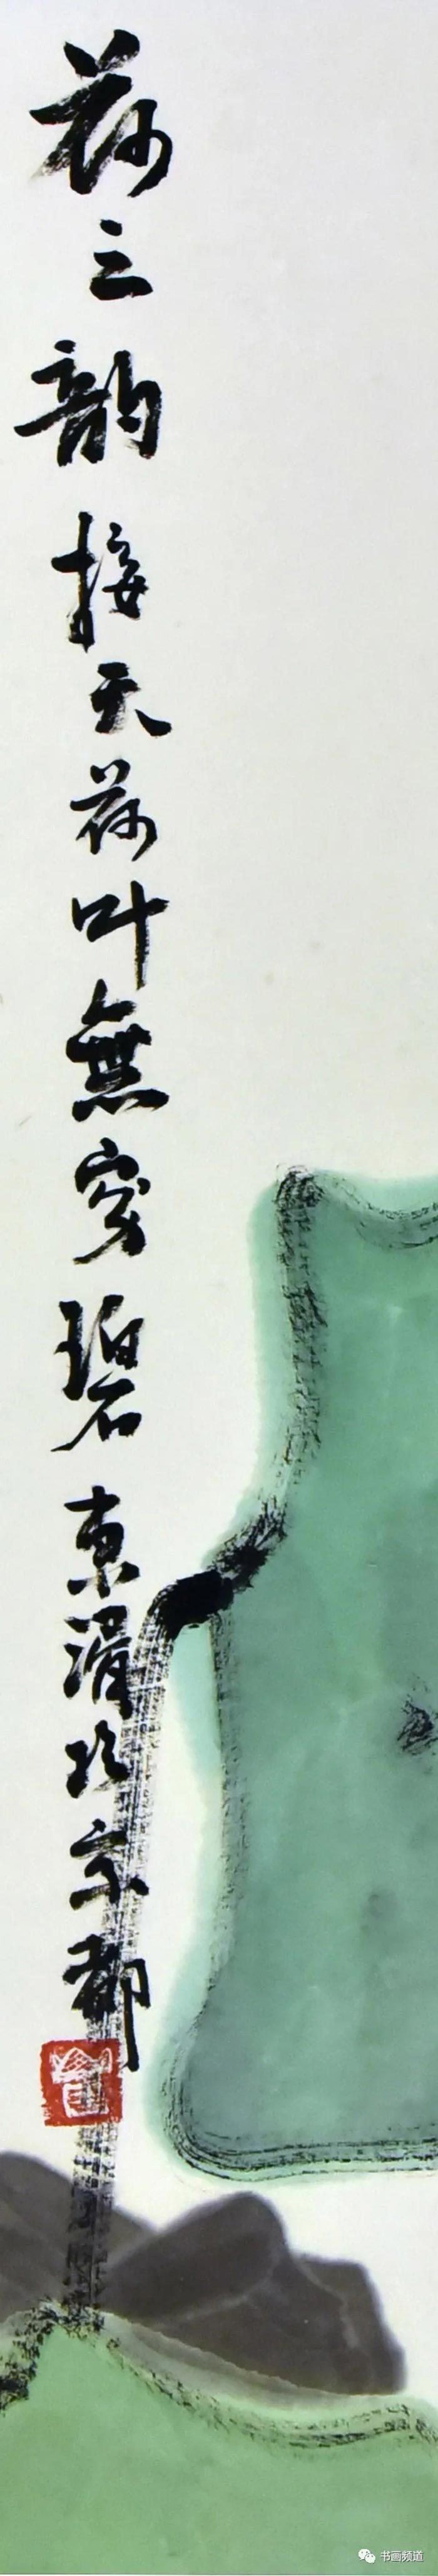 荷之韵 接天荷叶無穷碧 東湄於京都
书画频道